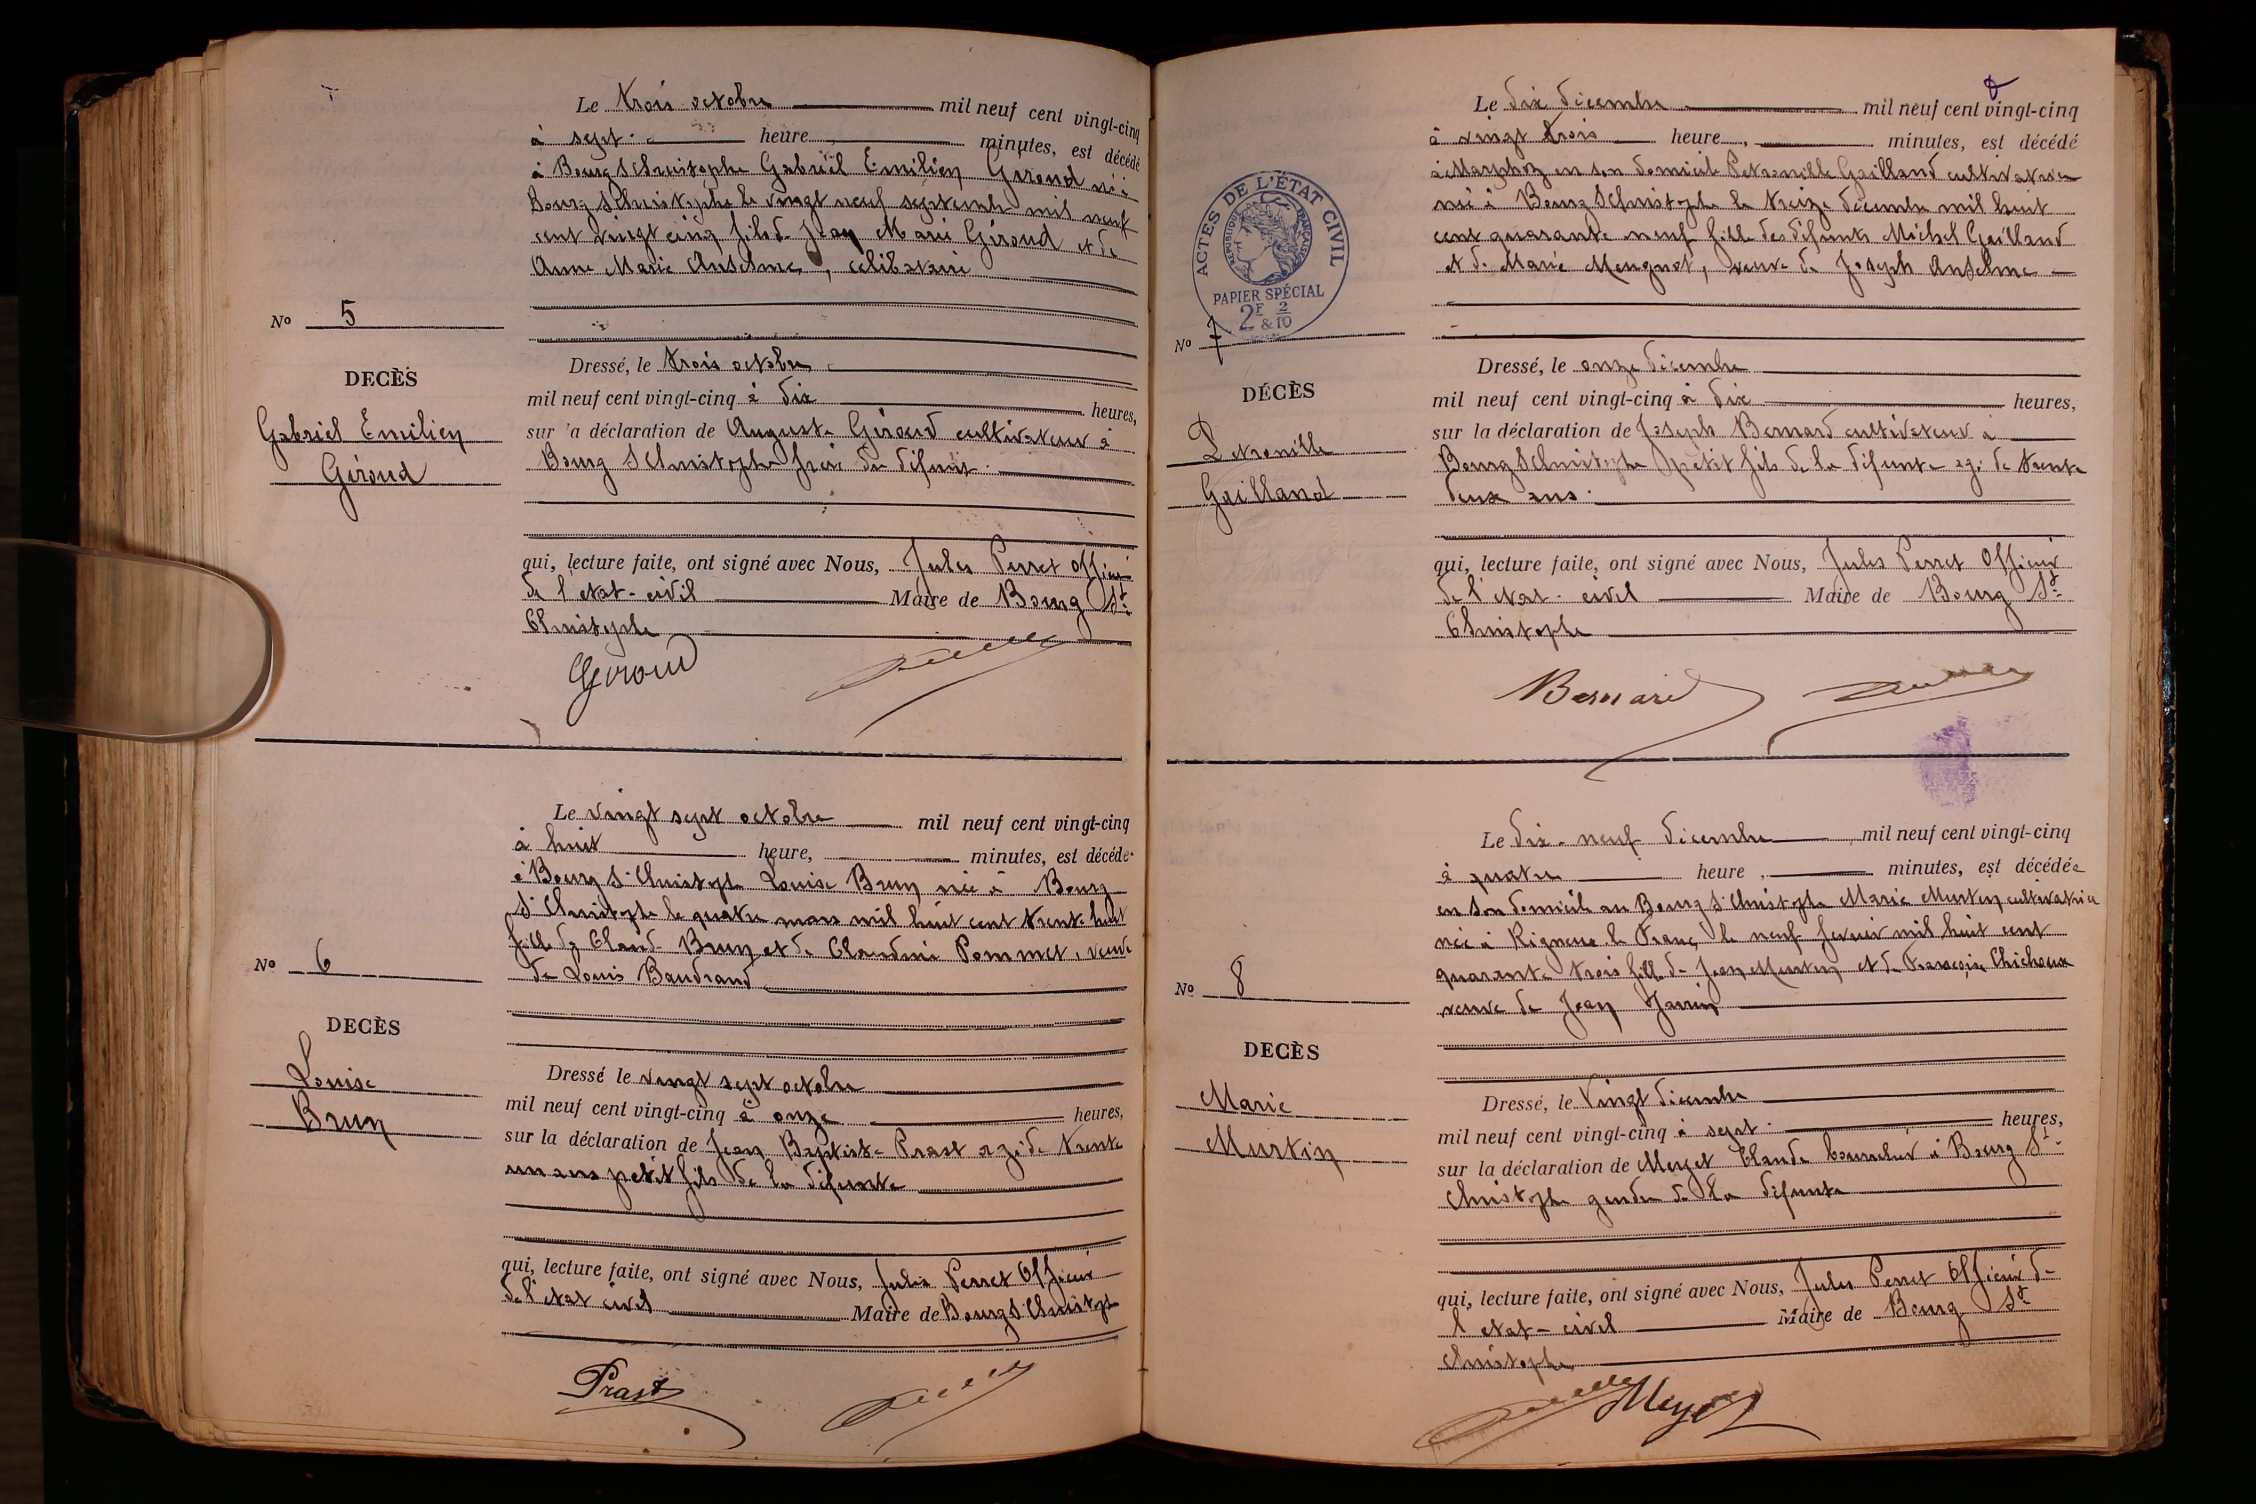 Le trois octobre mil neuf cent vingt-cinq
à sept heure minutes, est décédé
à Bourg St Christophe Gabriel Emilien Giroud né à
Bourg St Christophe le vingt neuf septembre mil neuf
cent vingt cinq fils de Jean Marie Giroud et de
Anne Marie Anselme, célibataire
No 5
DECÈS
Gabriel Emilien
Giroud
Dressé, le trois octobre
mil neuf cent vingt-cinq à dix heures,
sur la déclaration de Auguste Giroud cultivateur à
Bourg St Christophe frère du défunt
qui, lecture faite, ont signé avec Nous, Jules Perret Officier
de l'état-civil Maire de Bourg St
Christophe
Giroud
Le vingt sept octobre mil neuf cent vingt-cinq
à huit heure, minutes, est décédée
à Bourg St Christophe Louise Brun née à Bourg
St Christophe le quatre mars mil huit cent trente huit
fille de Claude Brun et de Claudine Pommet, veuve
de Louis Baudrand
No 6
DECÈS
Louise
Brun
Dressé le vingt sept octobre
mil neuf cent vingt-cinq à onze heures,
sur la déclaration de Jean Baptiste Prast agé de trente
un ans petit fils de la défunte
qui, lecture faite, ont signé avec Nous, Jules Perret Officier
de l'état civil Maire de Bourg St Christophe
Prast
Le dix décembre mil neuf cent vingt-cinq
à vingt trois heure, minutes, est décédé
à Marphoz en son domicile Petronille Gailland cultivatrice
née à Bourg St Christophe le treize décembre mil huit
cent quarante neuf fille des défunts Michel Gailland
et de Marie Mengnot, veuve de Joseph Anselme
ACTES DE L'ÉTAT CIVIL
RÉPUBLIQUE FRANÇAISE
PAPIER SPÉCIAL
2F & 2/10
No 7
DÉCÈS
Petronille
Gailland
Dressé, le onze décembre
mil neuf cent vingt-cinq à dix heures,
sur la déclaration de Joseph Bernard cultivateur à
Bourg St Christophe petit fils de la défunte agé de trente
deux ans
qui, lecture faite, ont signé avec Nous, Jules Perret Officier
de l'état-civil Maire de Bourg St
Christophe
Bernard
Le dix-neuf décembre mil neuf cent vingt-cinq
à quatre heure, minutes, est décédée
en son domicile au Bourg St Christophe Marie Murtin cultivatrice
née à Rigneux le Franc le neuf fevrier mil huit cent
quarante trois fille de Jean Murtin et de Françoise Chichoux
veuve de Jean Janin
No 8
DECÈS
Marie
Murtin
Dressé, le vingt décembre
mil neuf cent vingt-cinq à sept heures,
sur la déclaration de Meyet Claude bourrelier à Bourg St
Christophe gendre de la défunte
qui, lecture faite, ont signé avec Nous, Jules Perret Officier de
l'état-civil Maire de Bourg St
Christophe
Meyet